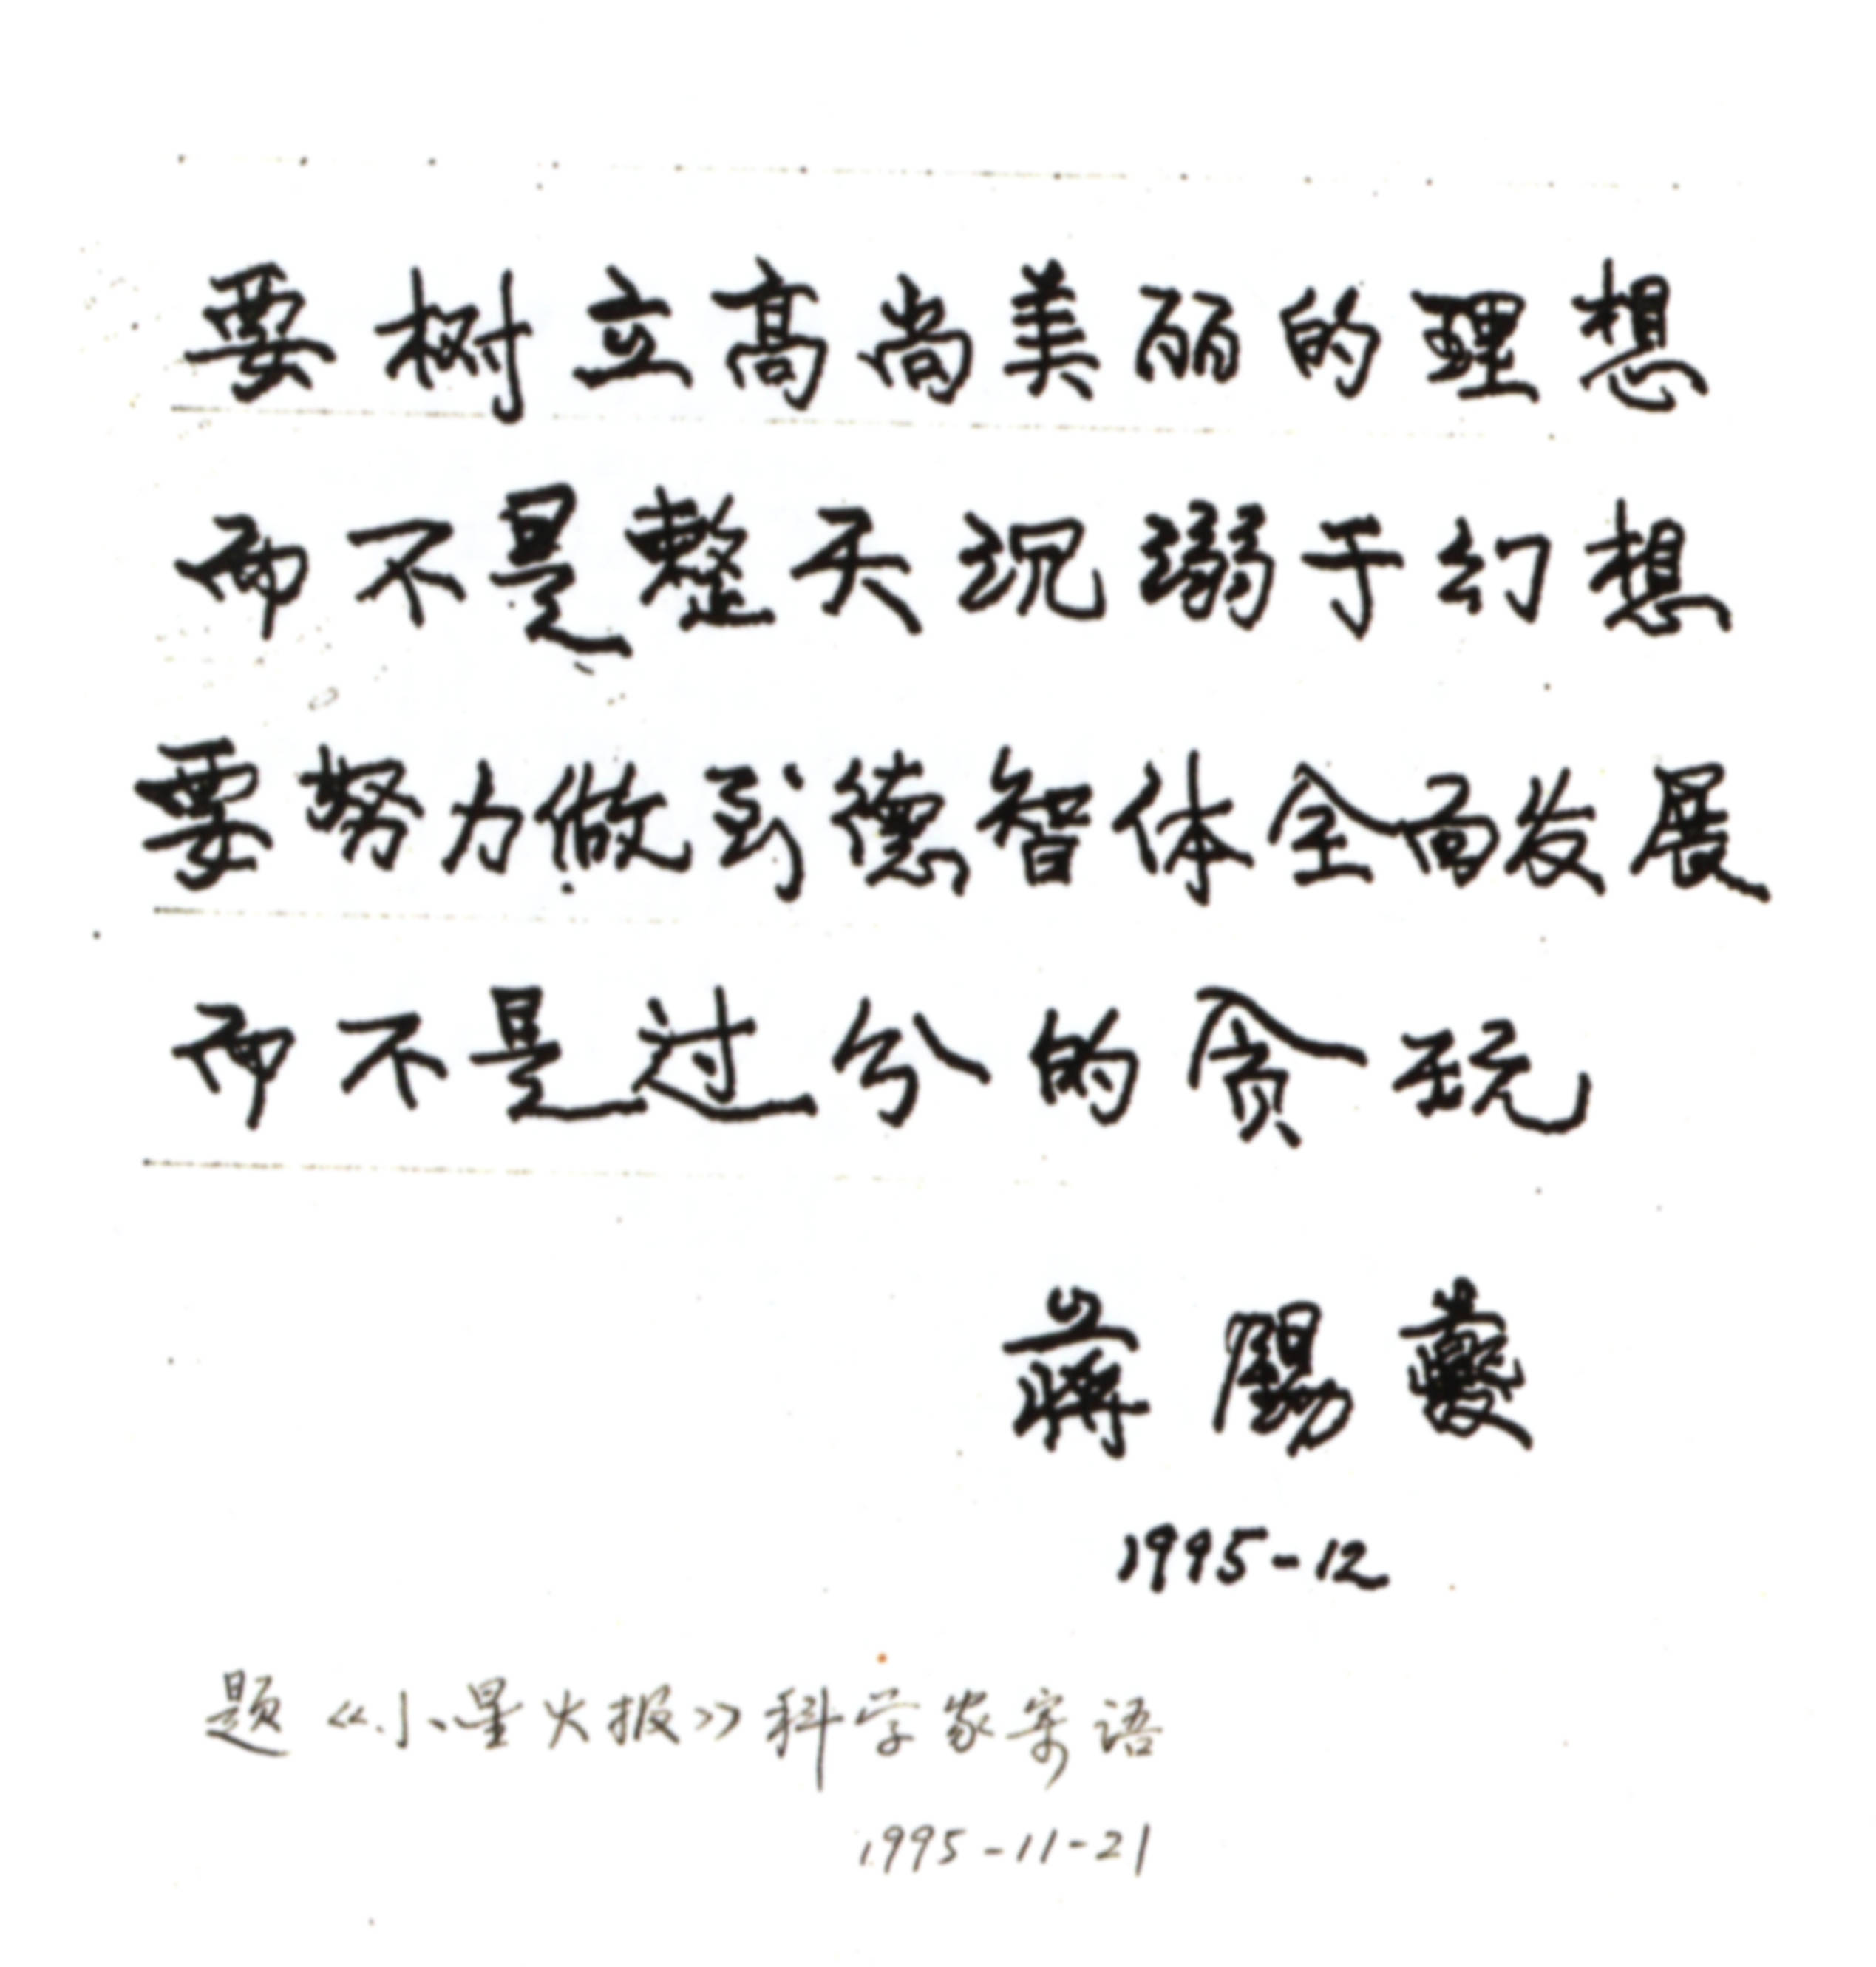 要树立高尚美丽的理想
而不是整天沉溺于幻想
要努力做到德智体全面发展
而不是过分的贪玩
蒋锡夔
1995-12
题《小星火报》科学家寄语
1995-11-21